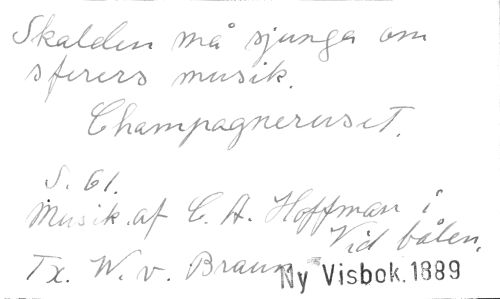 Skalden må sjunga om
sferers musik.
Champagneruset.
S. 61.
Musik af C. A. Hoffman i
Vid bålen.
Tx. W. v. Braun
Ny Visbok. 1889